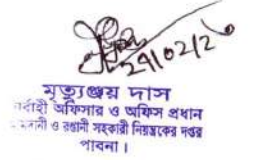 29/02/2০
মৃত্যুঞ্জয় দাস
নির্বাহী অফিসার ও অফিস প্রধান
আমদানী ও রপ্তানী সহকারী নিয়ন্ত্রকের দপ্তর
পাবনা।